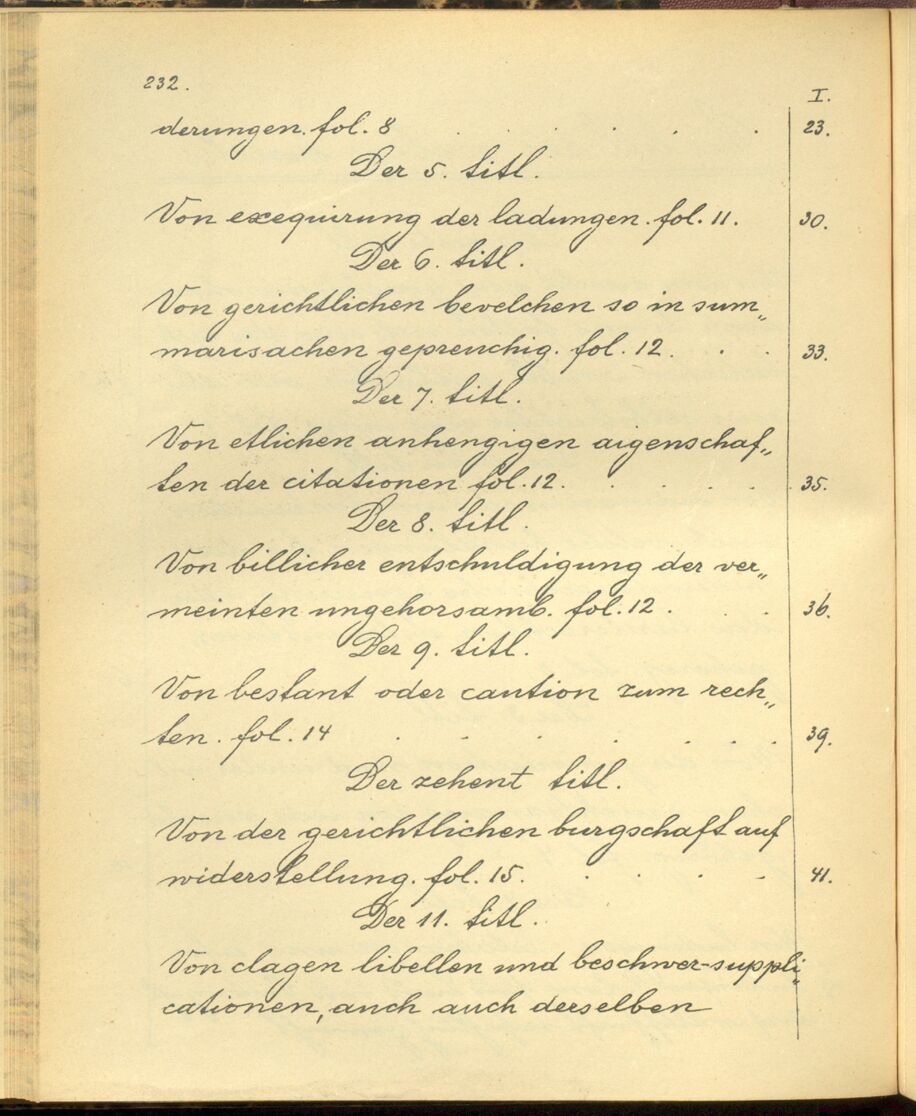 232.
I.
derungen. fol. 8 . . . . . 23.
Der 5. titl.
Von exequirung der ladungen. fol. 11. 30.
Der 6. titl.
Von gerichtlichen bevelchen so in sum„
marisachen gepreuchig. fol. 12. . . 33.
Der 7. titl.
Von etlichen anhengigen aigenschaf„
ten der citationen fol. 12. . . . . 35.
Der 8. titl.
Von billicher entschuldigung der ver„
meinten ungehorsamb. fol. 12. . . 36.
Der 9. titl.
Von bestant oder caution zum rech„
ten. fol. 14 . . . . . . . 39.
Der zehent titl.
Von der gerichtlichen burgschaft auf
widerstellung. fol. 15. . . . . 41.
Der 11. titl.
Von clagen libellen und beschwer-suppli„
cationen, auch auch derselben